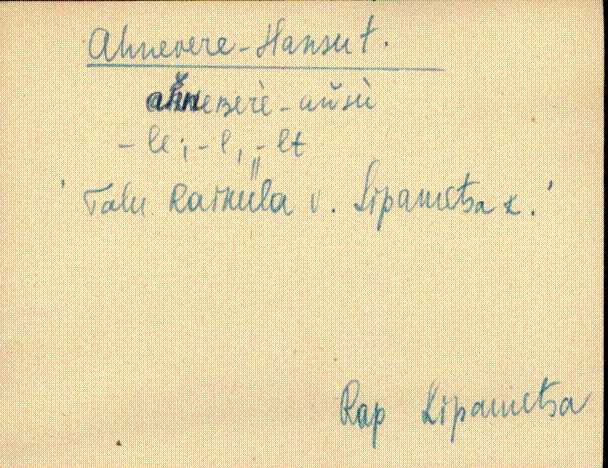 Ahnevere-Hansu t.
ahneʙerè-aǔsù
-le; -l, -lt
' Talu Raiküla v. Lipametsa k.'
Rap Lipametsa